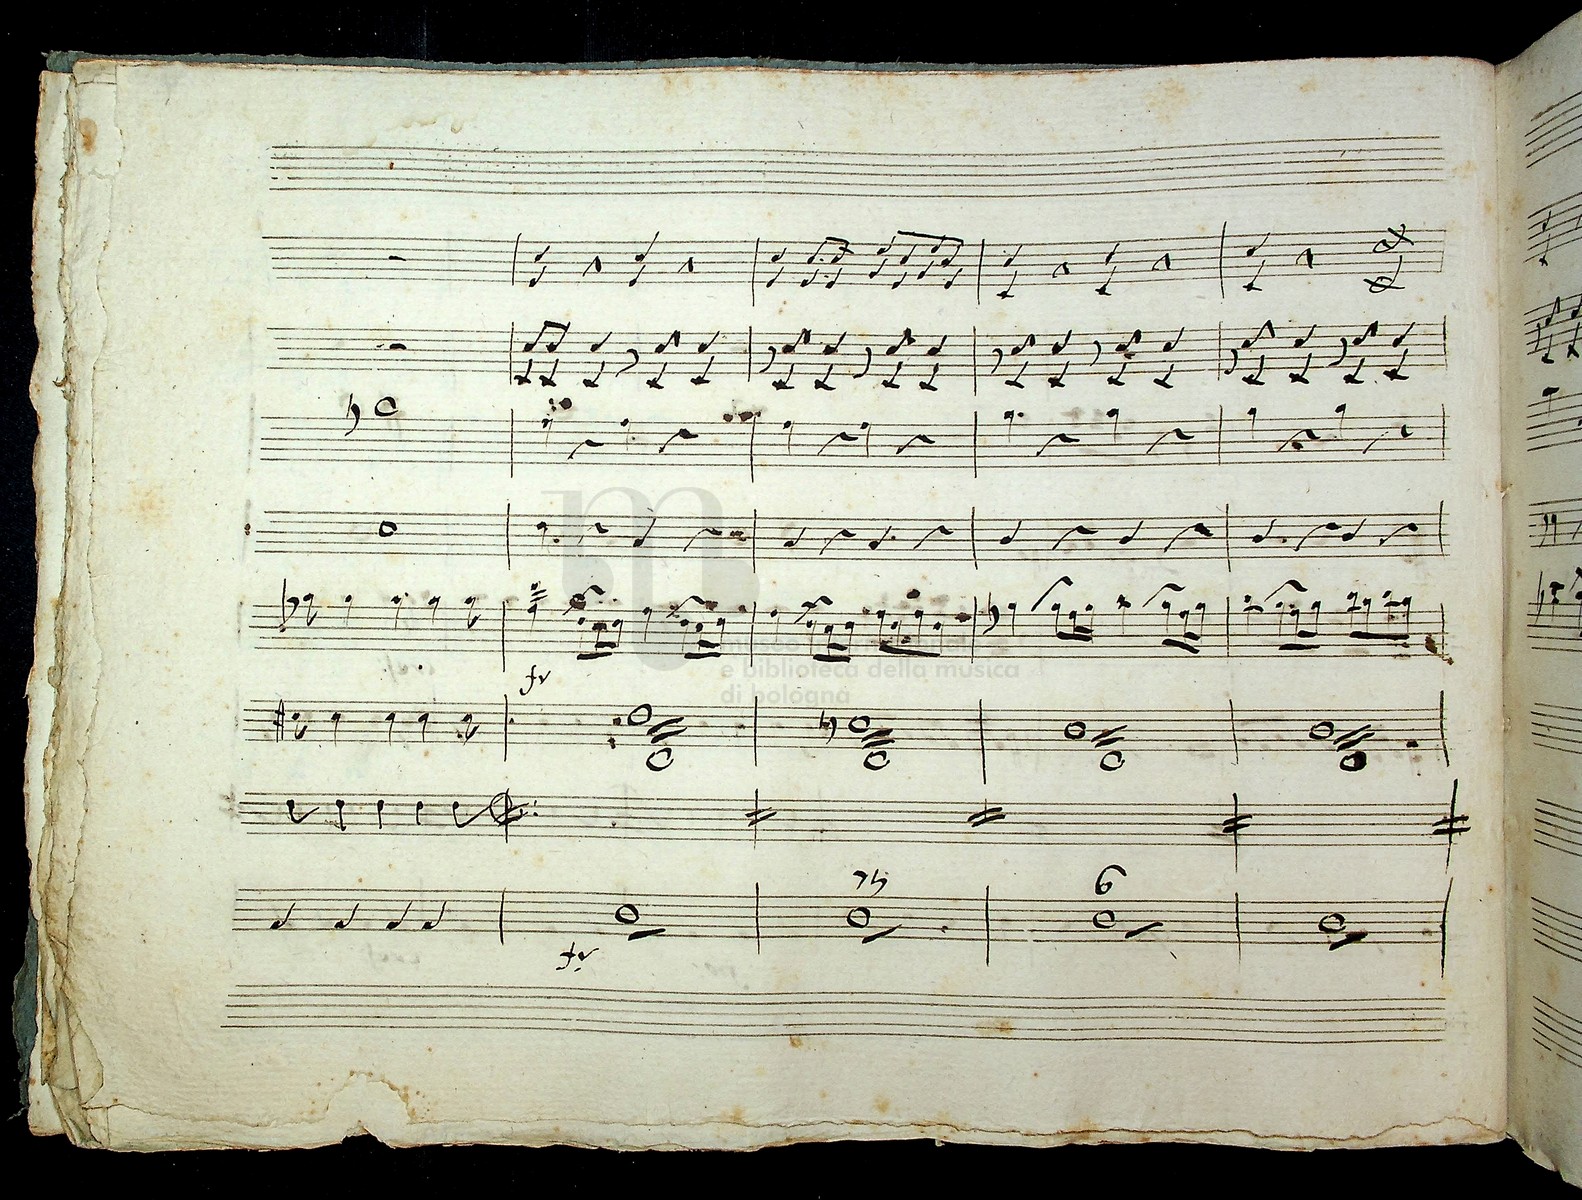 museo internazionale
e biblioteca della musica
di bologna
fv
7 5
6
fv